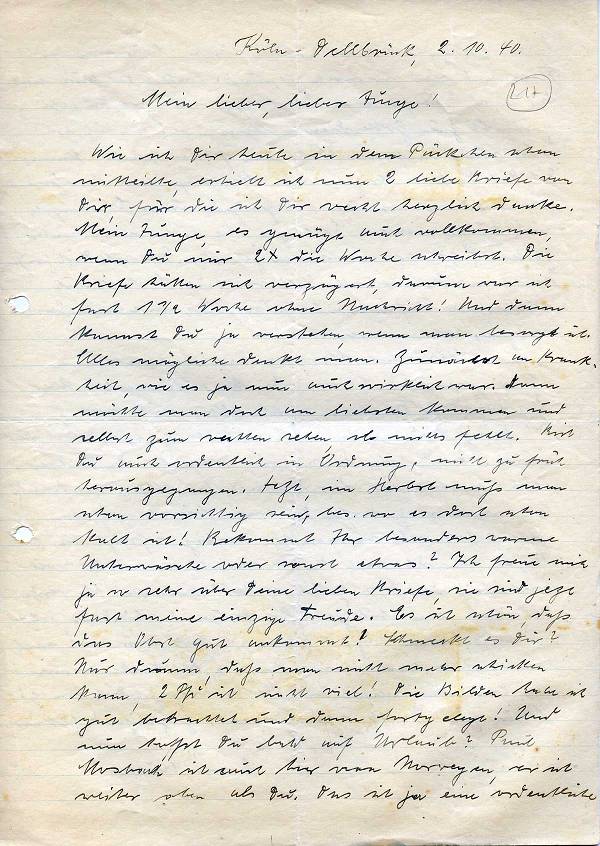 Köln-Dellbrück, 2.10.40.
217
Mein lieber, lieber Junge!
Wie ich Dir heute in dem Päckchen schon
mitteilte, erhielt ich nun 2 liebe Briefe von
Dir, für die ich Dir recht herzlich danke.
Mein Junge, es genügt auch vollkommen,
wenn Du nur 2x die Woche schreibst. Die
Briefe hatten sich verzögert, darum war ich
fast 1 1/2 Woche ohne Nachricht! Und dann
kannst Du ja verstehen, wenn man besorgt ist.
Alles mögliche denkt man. Zunächst an Krank-
heit, wie es ja nun auch wirklich war. Dann
möchte man doch am liebsten kommen und
selbst zum rechten sehen, ob nichts fehlt. Bist
Du auch ordentlich in Ordnung, nicht zu früh
herausgegangen. Jetzt, im Herbst muß man
schon vorsichtig sein, bes. wo es dort schon
kalt ist! Bekommt Ihr besonders warme
Unterwäsche oder sonst etwas? Ich freue mich
ja so sehr über Deine lieben Briefe, sie sind jetzt
fast meine einzige Freude. Es ist schön, daß
das Obst gut ankommt! Schmeckt es Dir?
Nur dumm, daß man nicht mehr schicken
kann, 2 Pfd ist nicht viel! Die Bilder habe ich
gut betrachtet und dann fortgelegt! Und
nun hoffst Du bald auf Urlaub? Paul
Mosbach ist auch hier von Norwegen, er ist
weiter oben als Du. Das ist ja eine ordentliche